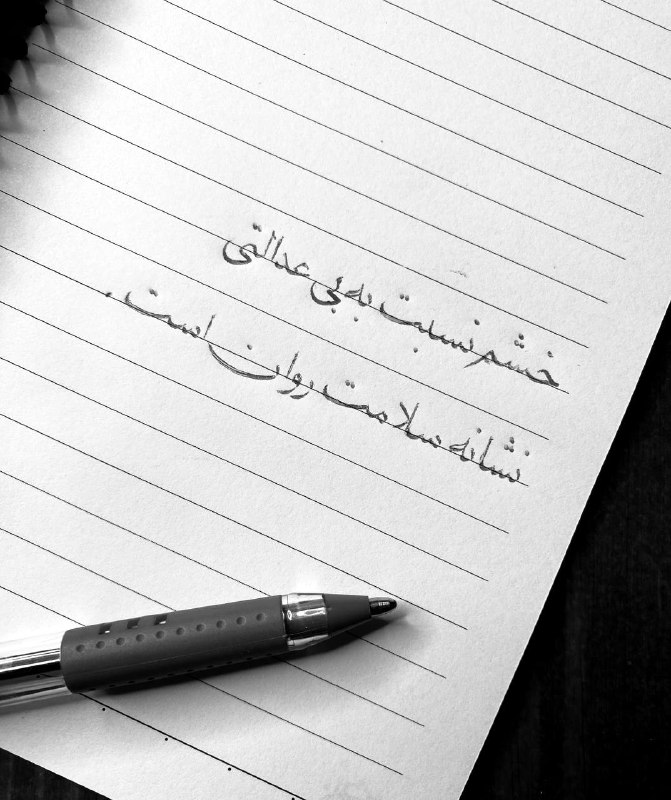 خشم نسبت به بی عدالتی
نشانه سلامت روان است.